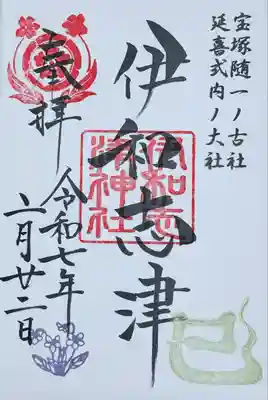 宝塚随一ノ古社
延喜式内ノ大社
伊和志津
伊和志
津神社
奉拝
令和七年
月廿二日